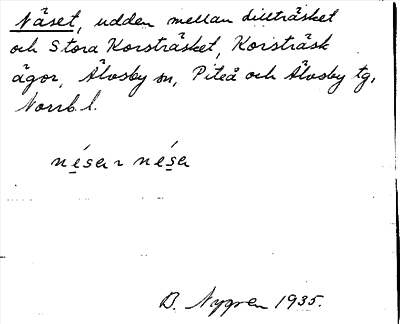 Näset, udden mellan Lillträsket
och Stora Korsträsket, Korsträsk
ägor, Älvsby sn, Piteå och Älvsby tg,
Norrb. l.
nésar nésa
D. Nygren 1935.